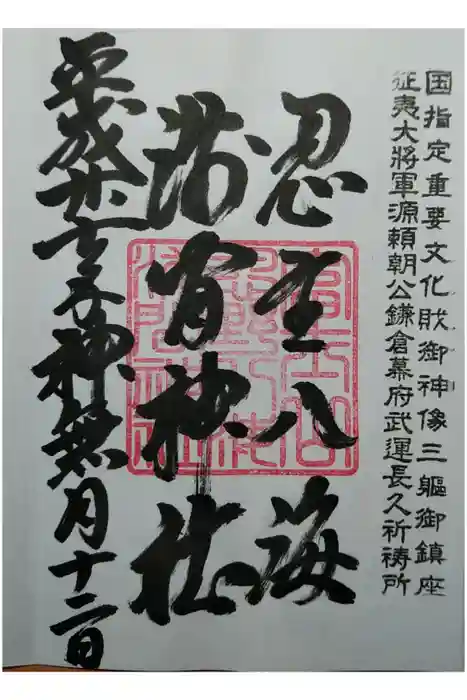 国指定重要文化財御神像三軀御鎮座
征夷大將軍源頼朝公鎌倉幕府武運長久祈祷所
忍野八海
浅間神社
平成廿七年神無月十二日